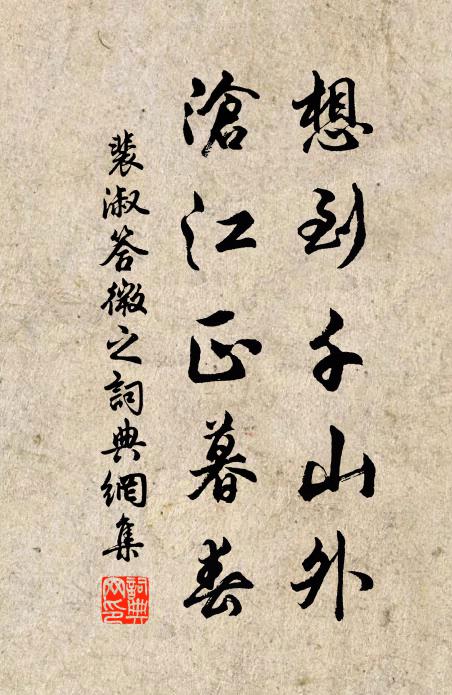 想到千山外
滄江正暮春
裴淑答微之詞典網集
詞典網印